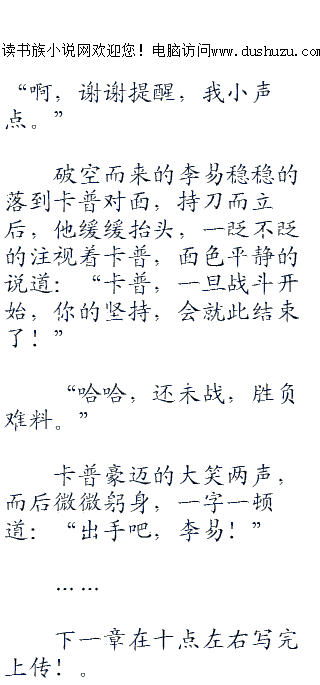 读书族小说网欢迎您！电脑访问www.dushuzu.com
“啊，谢谢提醒，我小声
点。”
破空而来的李易稳稳的
落到卡普对面，持刀而立
后，他缓缓抬头，一眨不眨
的注视着卡普，面色平静的
说道：“卡普，一旦战斗开
始，你的坚持，会就此结束
了！”
“哈哈，还未战，胜负
难料。”
卡普豪迈的大笑两声，
而后微微躬身，一字一顿
道：“出手吧，李易！”
……
下一章在十点左右写完
上传！。